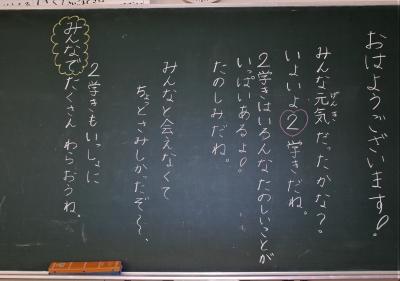 おはようございます!
みんな元気だったかな?
げんき
いよいよ2学きだね。
2学きはいろんなたのしいことが
いっぱいあるよ!
たのしみだね。
みんなと会えなくて
ちょっとさみしかったぞ〜、
2学きもいっしょに
みんなでたくさんわらおうね。